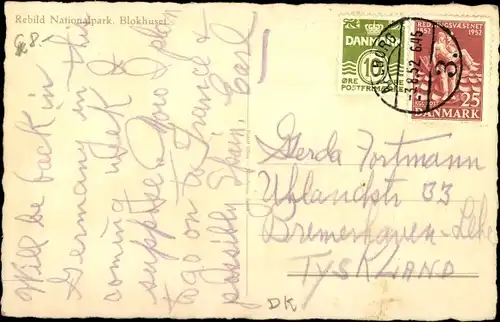 Rebild Nationalpark. Blokhuset
68.-
Will be back in
Germany in the
coming week I
suppose. Now I plan
to go on to France &
possibly Spain. Earl
DANMARK
10
ØRE
POSTFRIM
ØRE
3-8.52
3.
REDNINGSVÆSENET
1852 1952
25
DANMARK
Gerda Fortmann
Uhlandstr 33
Bremerhaven-Lehe
TYSKLAND
DK